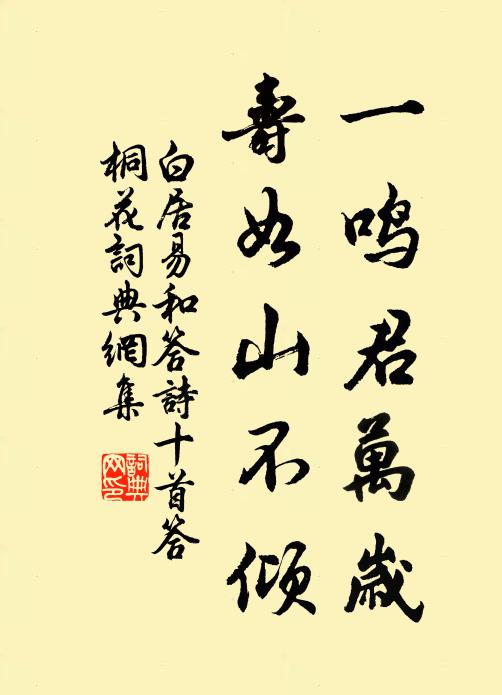 一鸣君萬歲
壽如山不倾
白居易和答詩十首答
桐花詞典網集
詞典
网印